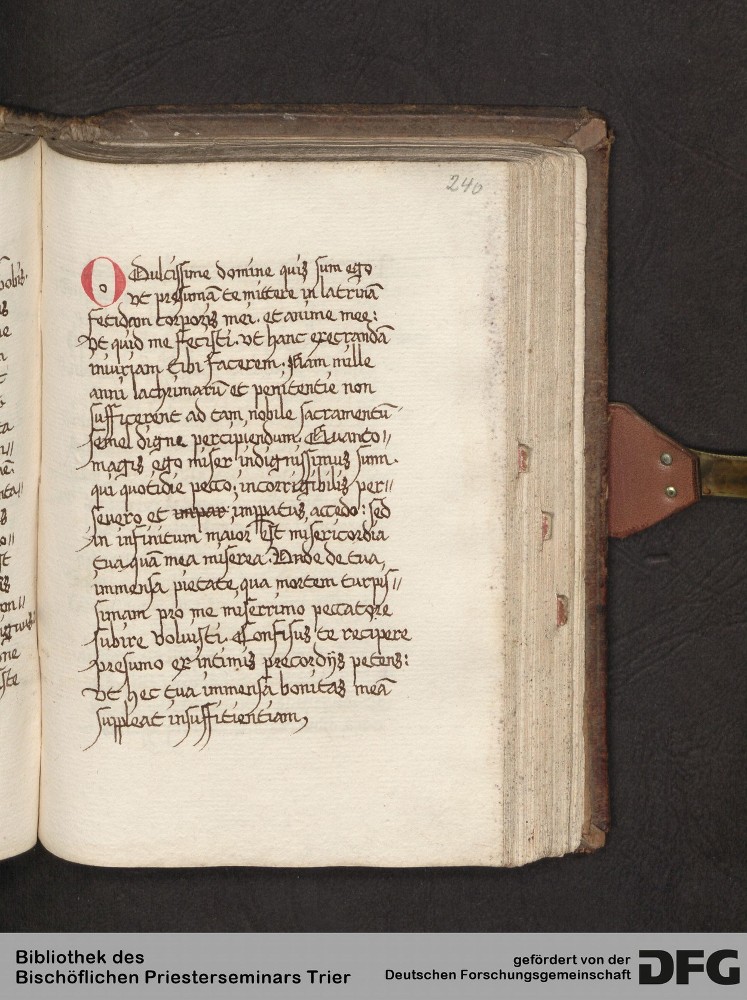 240
O Dulcissime domine quis sum ego
vt presumā te mittere in latrinā
fetidam corporis mei. et anime mee:
Vt quid me fecisti. vt hanc execrandā
iniuriam tibi facerem. Nam mille
anni lachrimarū et penitentie non
sufficerent ad tam nobile sacramentū
semel digne percipiendum. Quanto//
magis ego miser indignissimus sum.
qui quotidie pecco, incorrigibilis per//
severo et impar impratus, accedo: sed
in infinitum maior est misericordia
tua quā mea miserea. Unde de tua,
immensa pietate, qua mortem turpis//
simam pro me miserrimo peccatore
subire voluisti. Confisus te recipere
presumo ex intimis precordijs petens:
vt hec tua immensa bonitas meā
suppleat insufficientiam,
Bibliothek des
Bischöflichen Priesterseminars Trier
gefördert von der
Deutschen Forschungsgemeinschaft
DFG